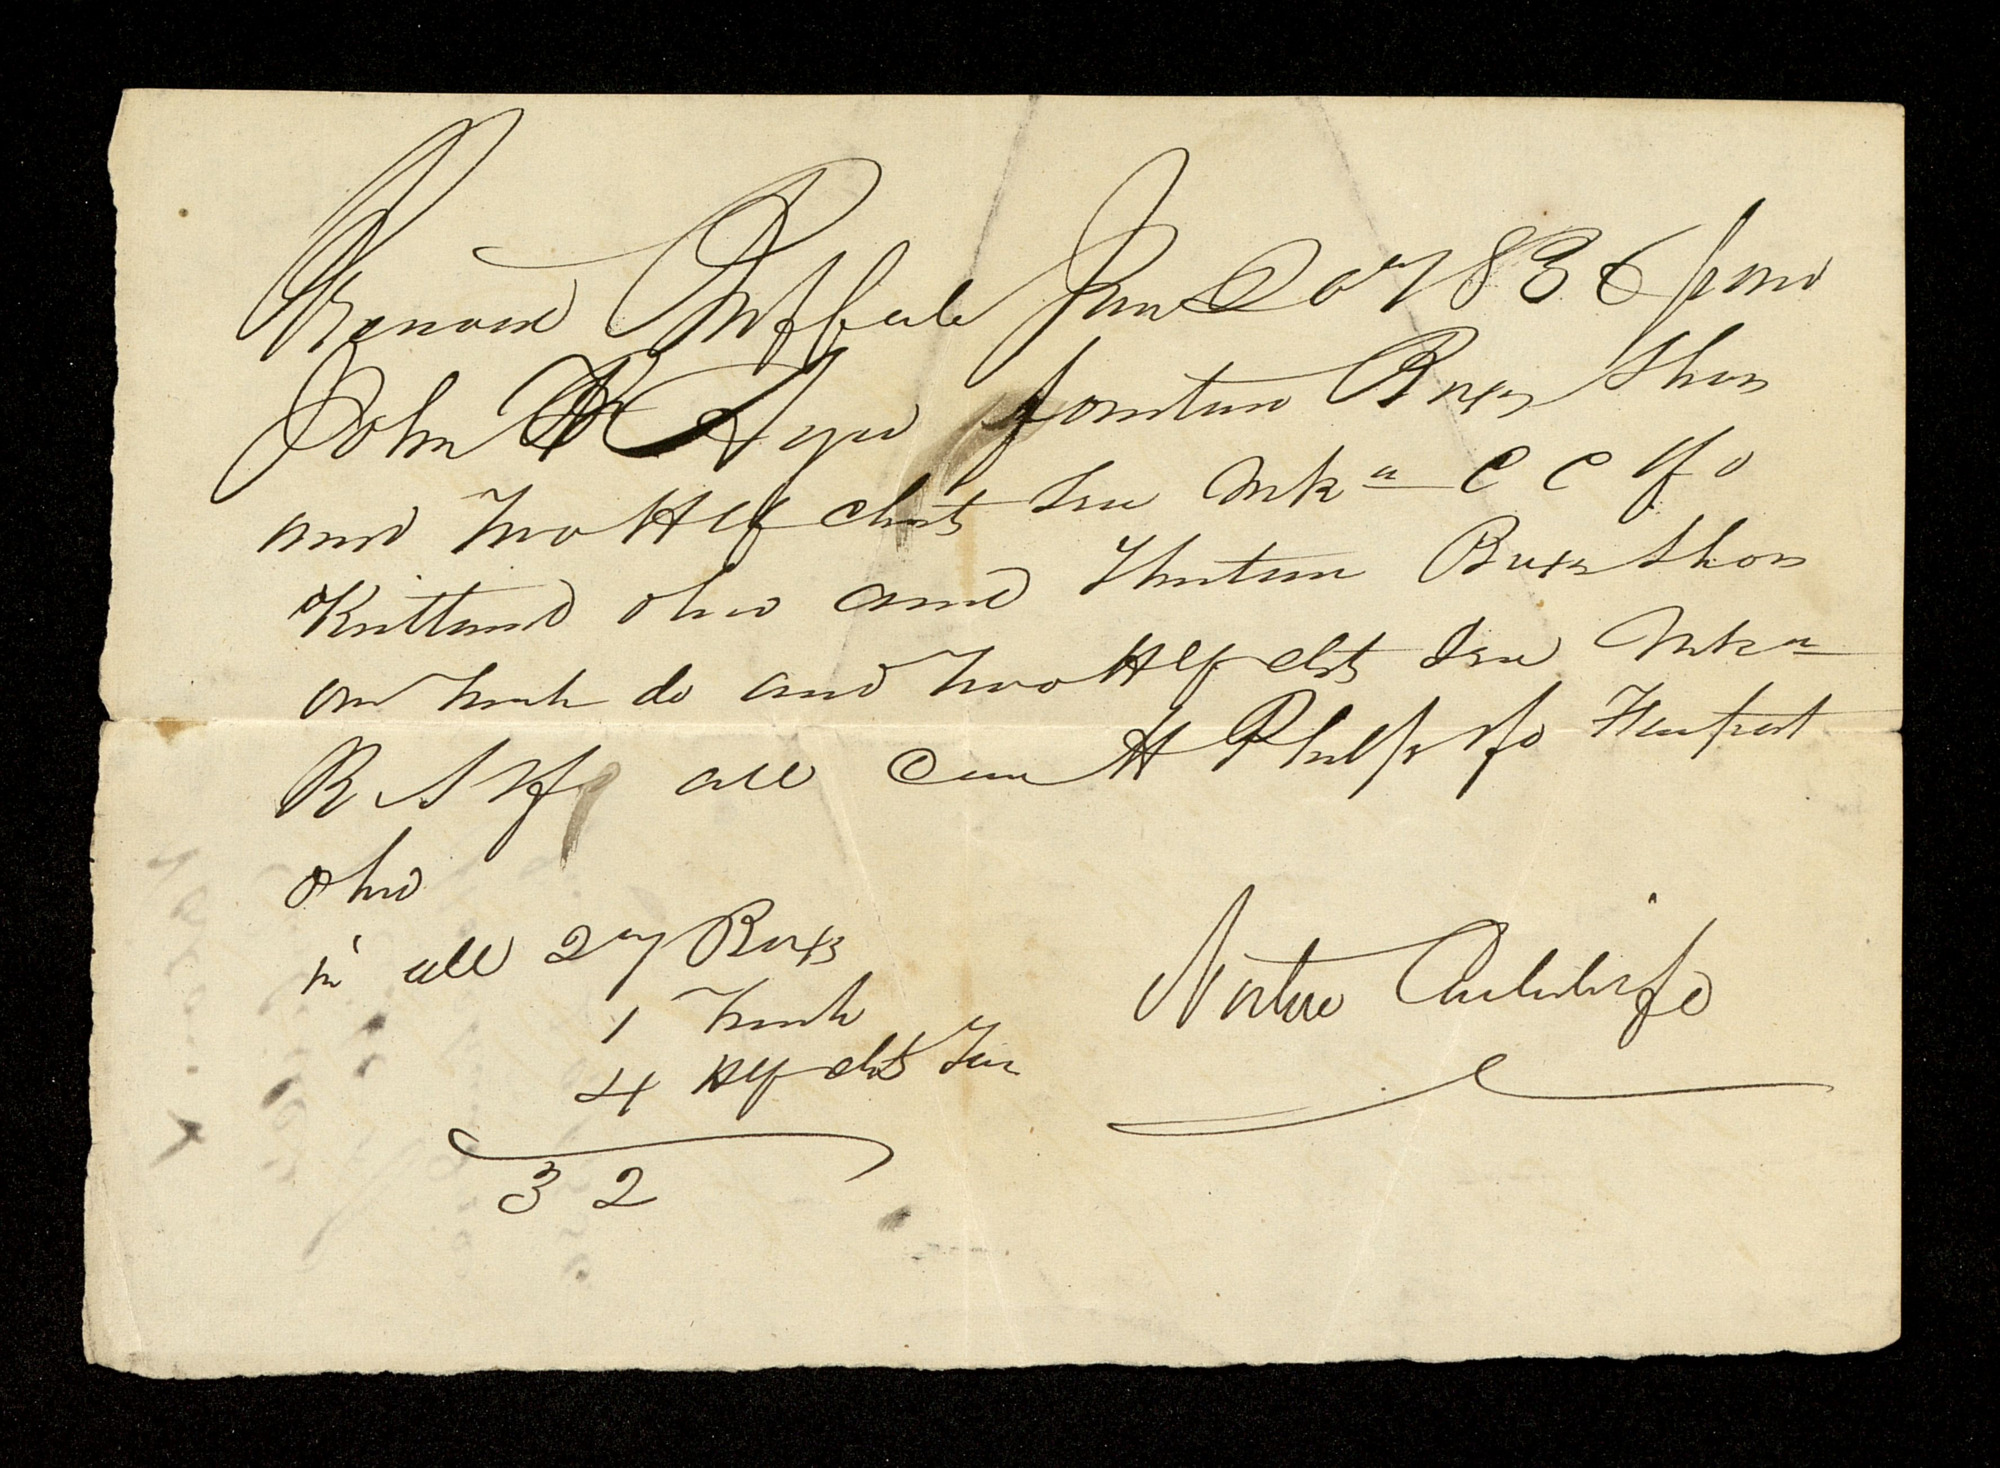 Received Buffalo June 20 1836 from
John fourteen Boxes Shoes
and two Hlf chsts Tea Mkd C C & Co
Kirtland Ohio and thirteen Boxes Shoes
one trunk do and two Hlf chsts Tea Mkd
R S & Co all Care H Phelps & Co Fairport
Ohio
in all 27 Boxes
1 Trunk
4 Hlf chts Tea
32